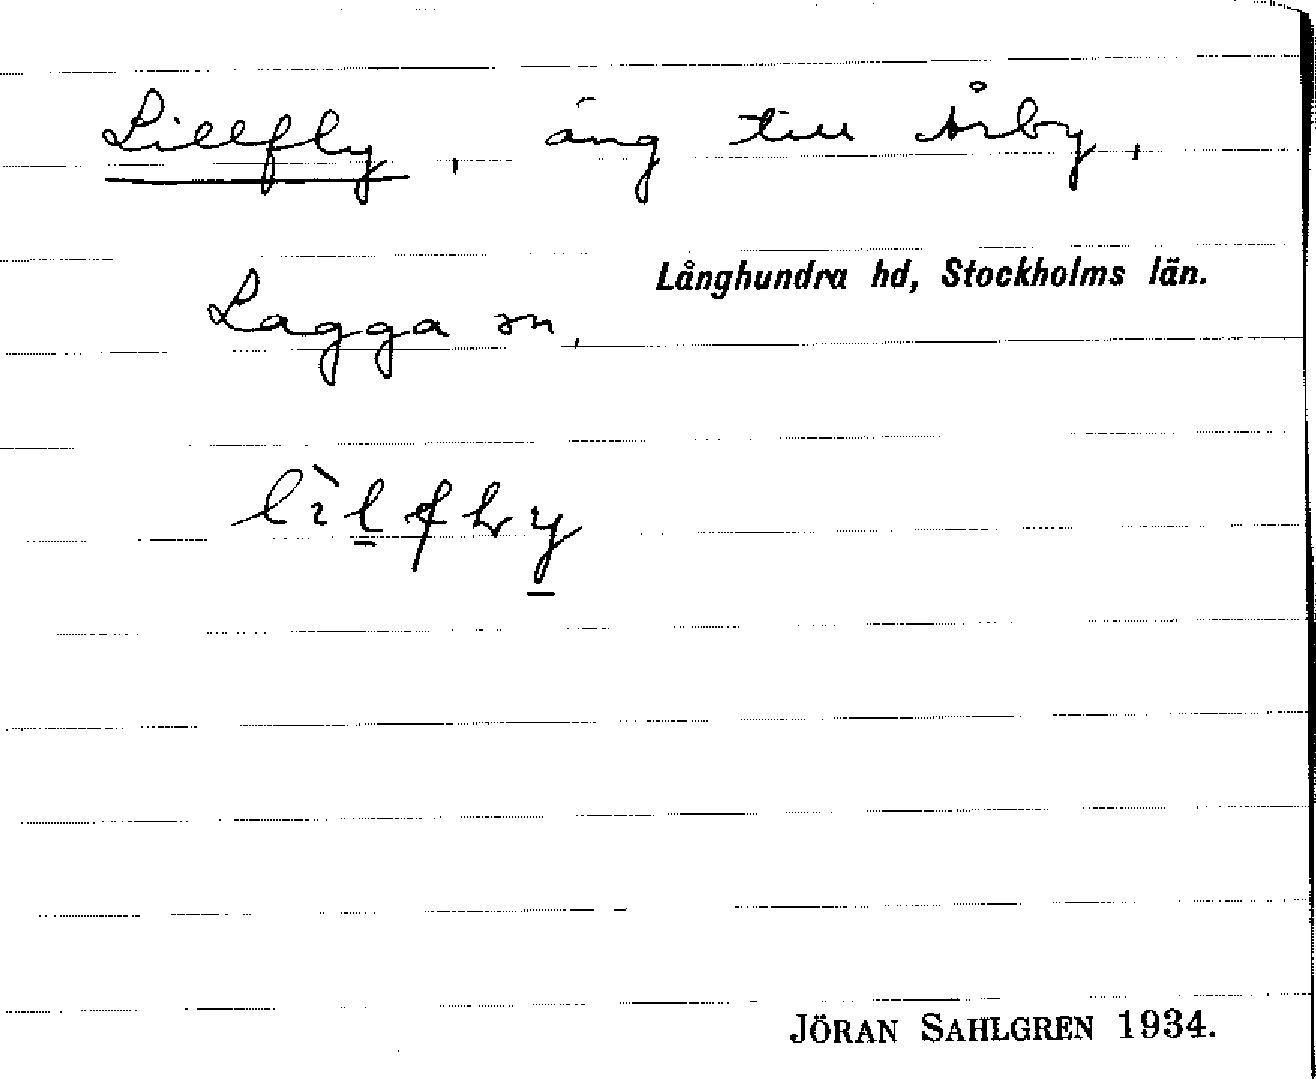 Lillfly, äng till Årby,
Långhundra hd, Stockholms län.
Lagga sn,
lìlfly
JÖRAN SAHLGREN 1934.